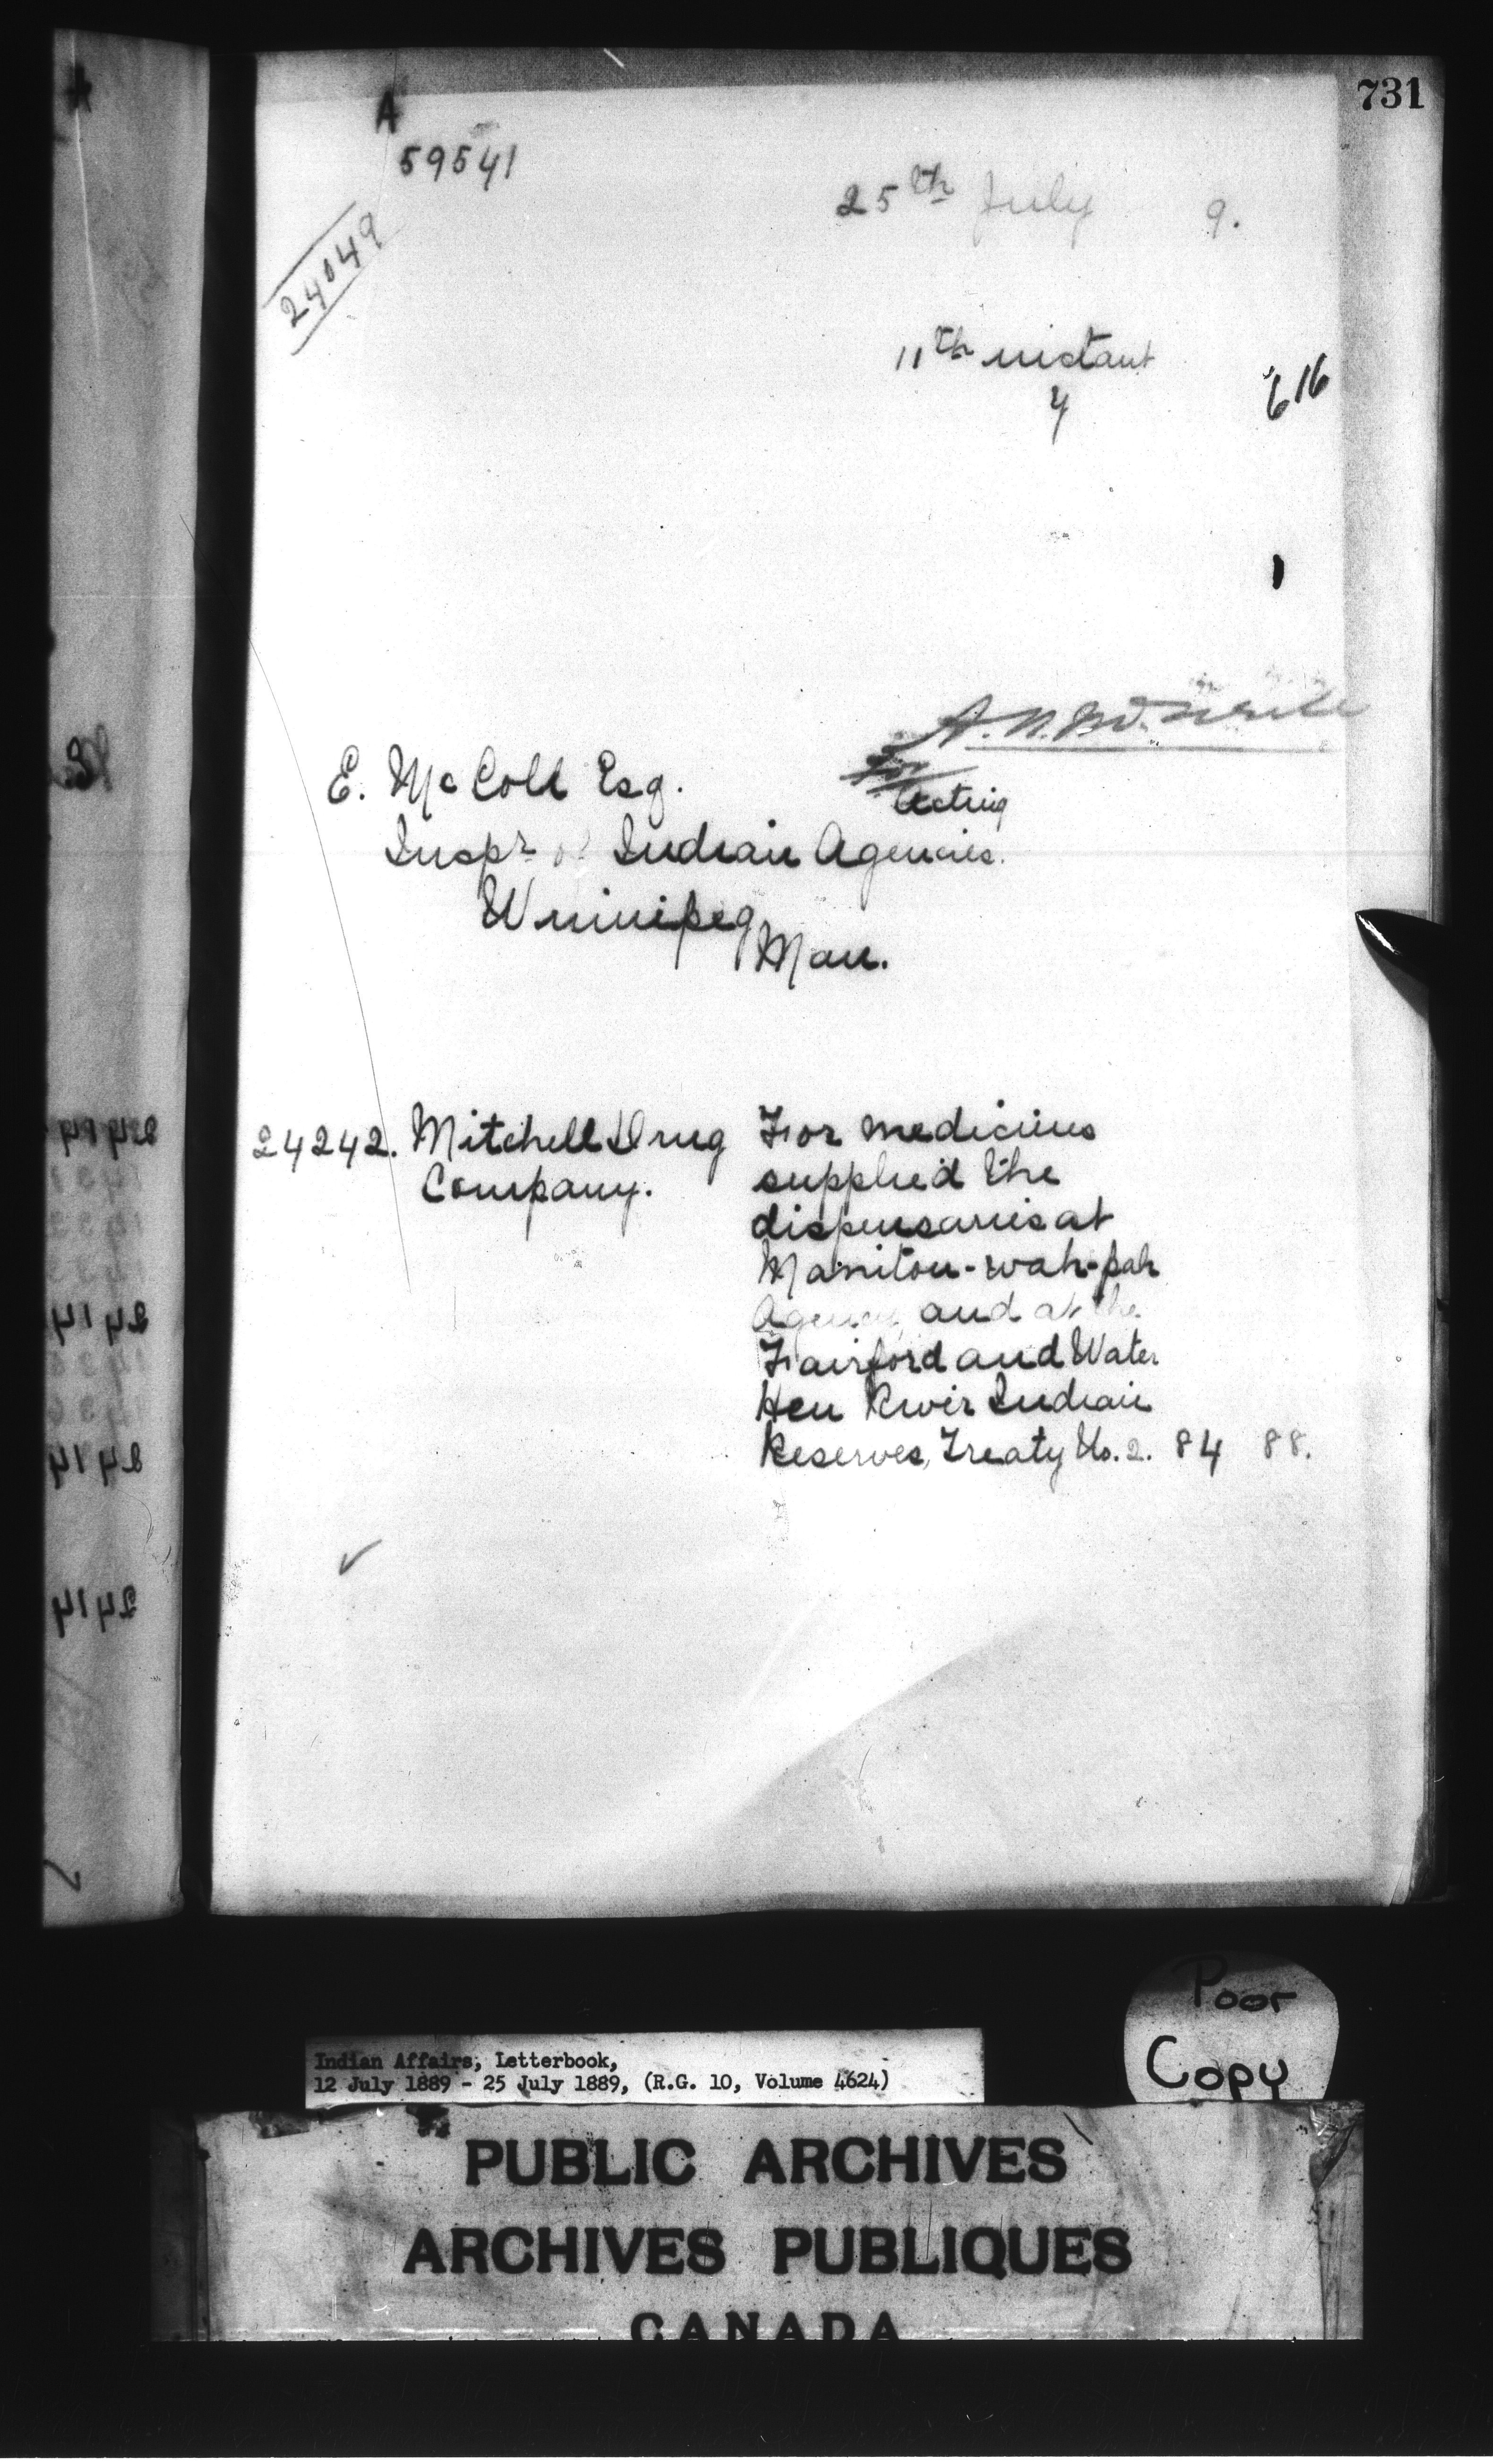 731
A
59541
24049
25th July 9.
11th instant
y
616
1
For
Acting
E. McColl Esq.
Inspr of Indian Agencies.
Winnipeg
Man.
24242. Mitchell Drug
Company.
For medicines
supplied the
dispensaries at
Manitou-wah-pah
Agency and at the
Fairford and Water
Hen River Indian
Reserves, Treaty No. 2. 84 88.
Poor
Copy
Indian Affairs, Letterbook,
12 July 1889 - 25 July 1889, (R.G. 10, Volume 4624)
PUBLIC ARCHIVES
ARCHIVES PUBLIQUES
CANADA